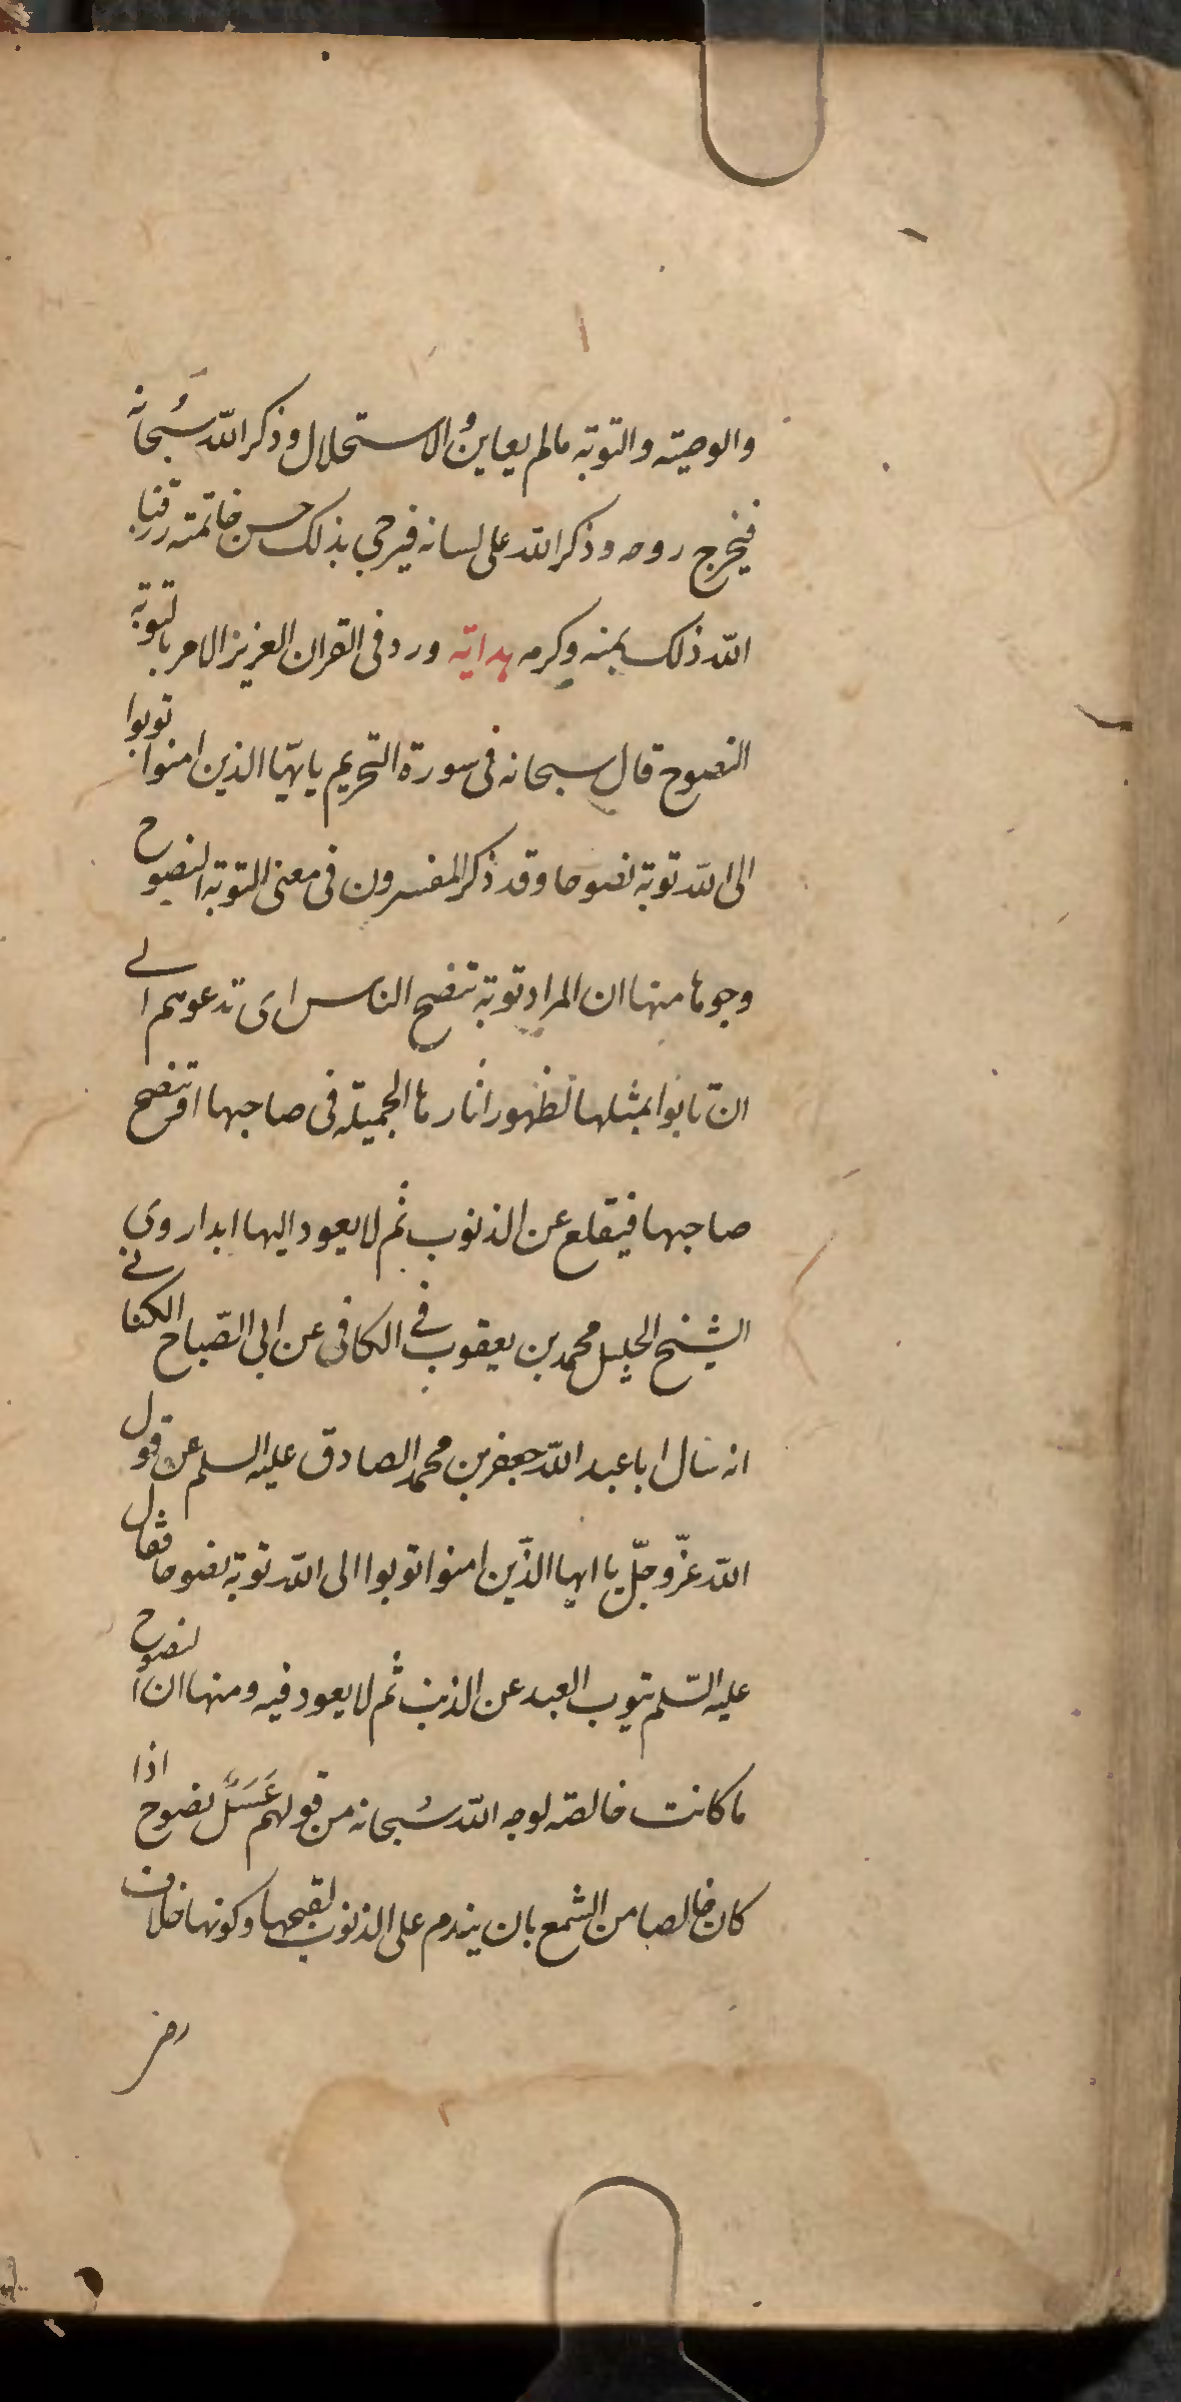 والوصيته والتوبة مالم يعاين والاستحلال وذكر الله سبحانه و
فيخرج روحه وذكر الله على لسانه فيرجى بذلك حسن خاتمته رزقنا
الله ذلك بمنه وكرمه هداية ورد فى القران العزيز الامر بالتوبة
النصوح قال سبحانه فى سورة التحريم يا ايّها الذين امنوا توبوا
الى الله توبة نصوحا وقد ذكر المفسرون فى معنى التوبة النصوح
وجوها منها ان المراد توبة تنصح الناس اى تدعوهم الى
ان تابوا بمثلها لظهور اثارها الجميلة فى صاحبها او تنصح
صاحبها فيقلع عن الذنوب ثم لا يعود اليها ابدا روى
الشيخ الجليل محمد بن يعقوب فى الكافى عن ابى الصّباح الكنانى
انه سال ابا عبد الله جعفر بن محمد الصادق عليه السلم عن قول
الله عزّ وجلّ يا ايها الذّين امنوا توبوا الى الله توبة نصوحا فقال
عليه السّلم يتوب العبد عن الذنب ثم لا يعود فيه ومنها ان النصوح
ما كانت خالصة لوجه الله سُبحانه من قولهم عَسَلٌ نصوح اذا
كان خالصا من الشمع بان يندم على الذنوب لقبحها وكونها خلاف
رضى